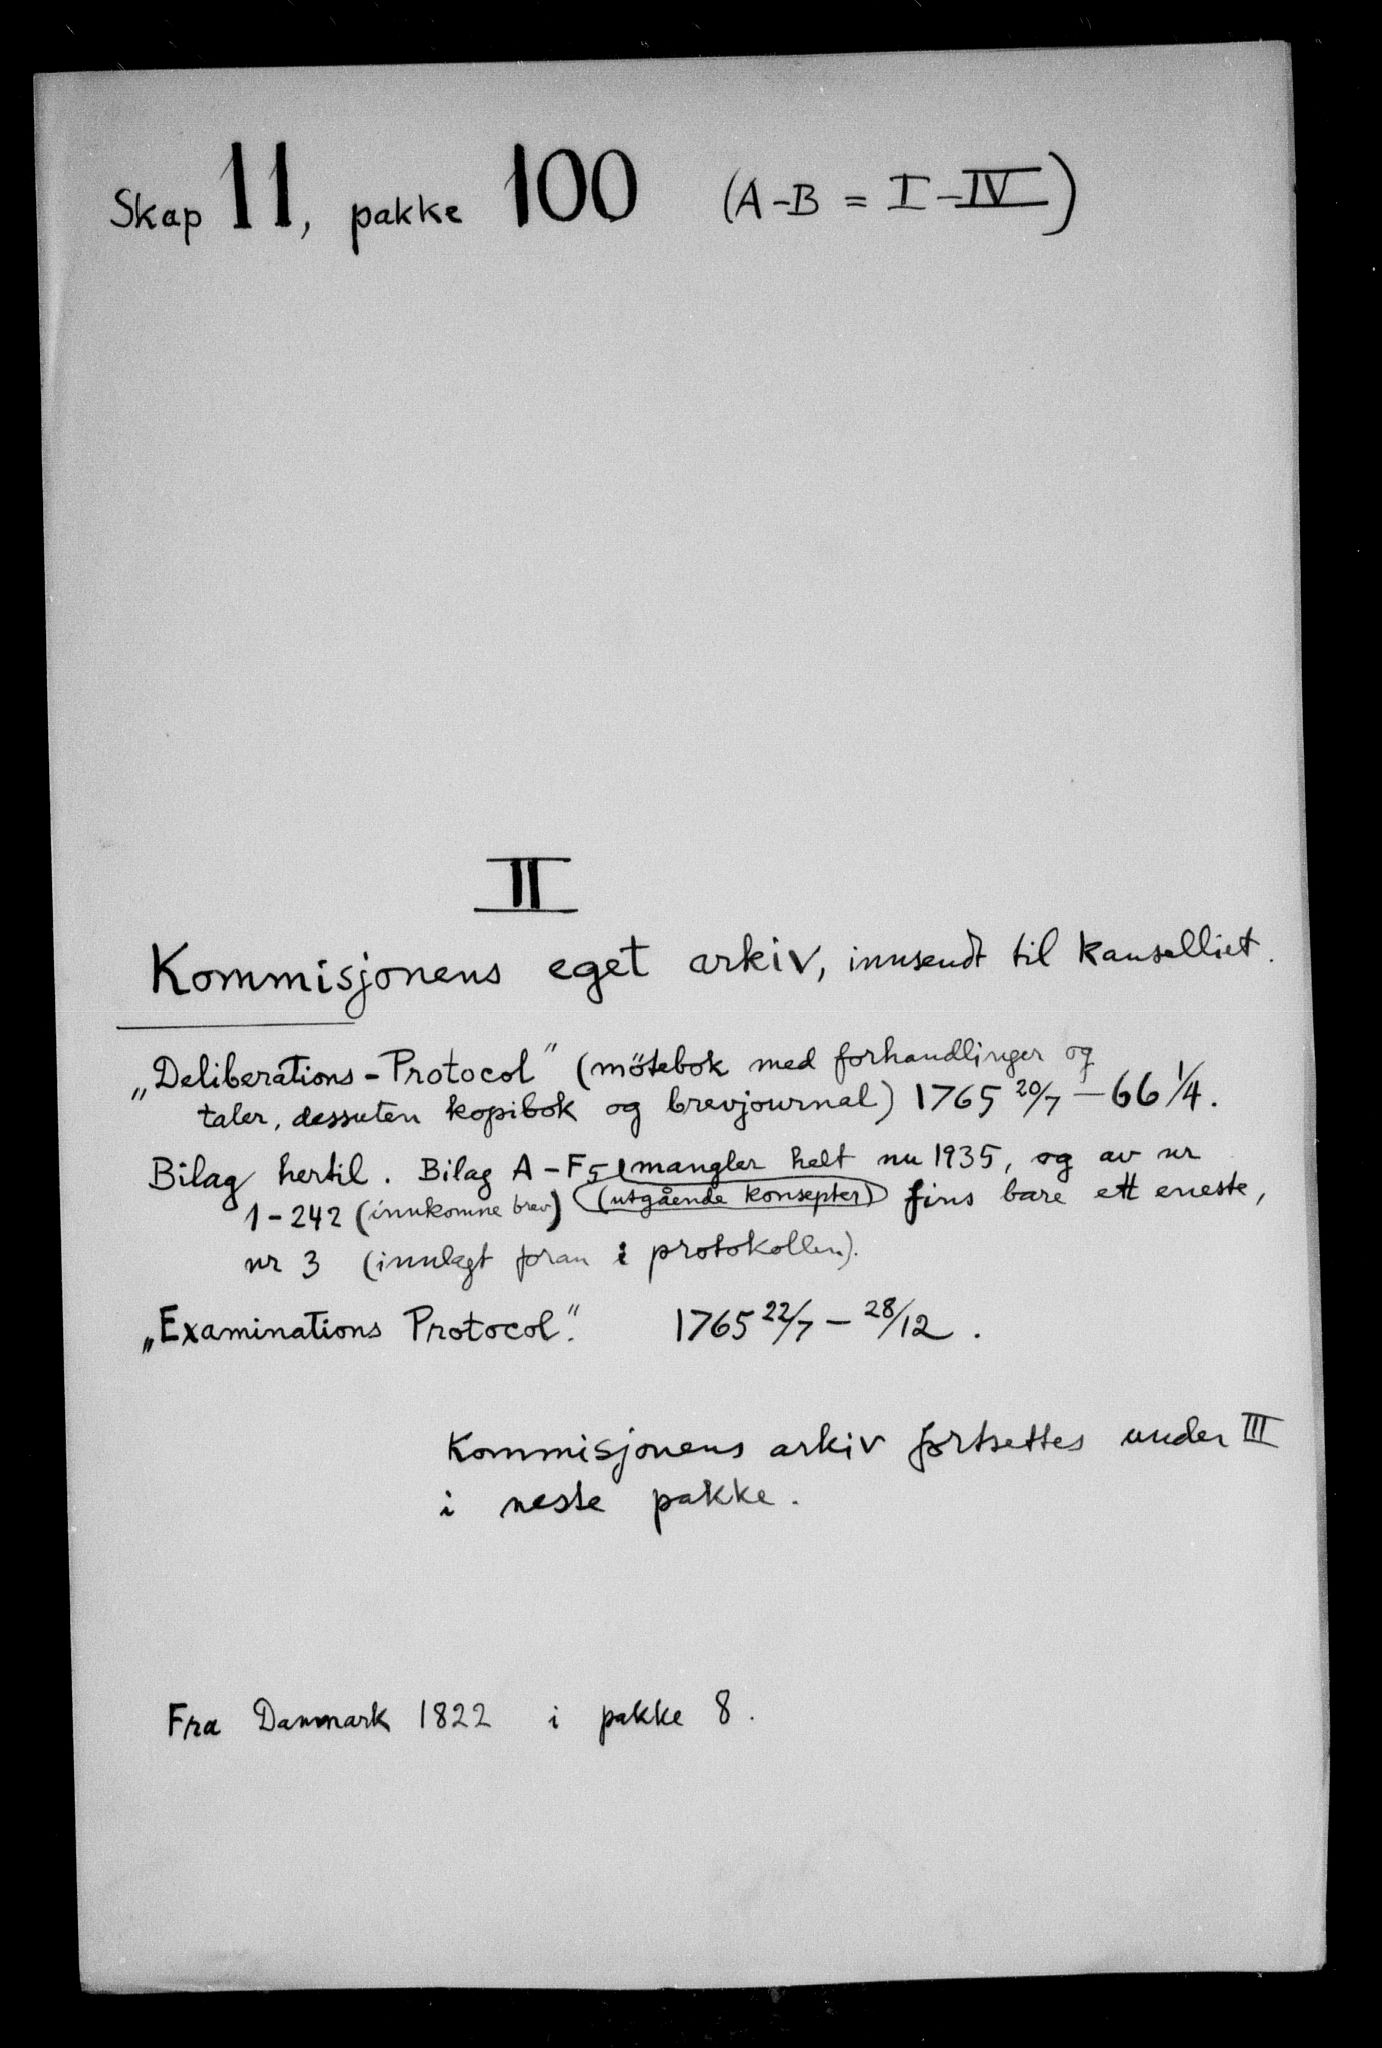 Skap 11, pakke 100 (A-B = I-IV)
II
Kommisjonens eget arkiv, innsendt til kanselliet.
„Deliberations-Protocol" (mötebok med forhandlinger og
taler, dessuten kopibok og brevjournal) 1765 20/7 - 66 1/4.
Bilag hertil. Bilag A-F5 mangler helt nu 1935, og av nr
1-242 (innkomne brev) (utgående konsepter) fins bare ett eneste,
nr 3 (innlagt foran i protokollen).
„Examinations Protocol". 1765 22/7 - 28/12.
Kommisjonens arkiv fortsettes under III
i neste pakke.
Fra Danmark 1822 i pakke 8.